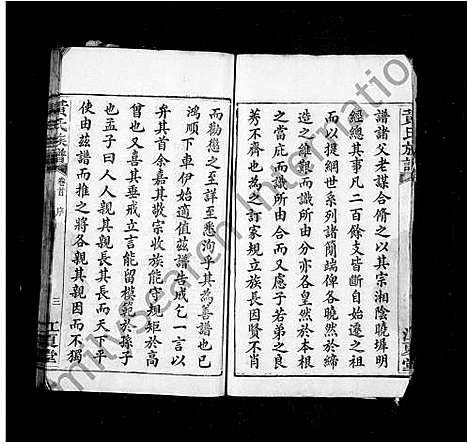 黃氏族譜
江夏堂
譜諸父老謀合脩之以其宗湘陰曉墀明
經總其事凡二百餘支皆斷自始遷之祖
而以提綱世系列諸簡端俾各曉然於締
造之維艱而識所由分亦各皇然於本根
之當庇而識所由合而又慮子若弟之良
莠不齊也為之訂家規立族長因賢不肖
而勸懲之至詳至悉洵乎其為善譜也已
鴻順下車伊始適值茲譜告成乞一言以
弁其首余嘉其敬宗收族能守規矩於高
曾也又喜其垂戒立言能留模範於孫子
也孟子曰人人親其親長其長而天下平
使由茲譜而推之將各親其親因而不獨
黃氏族譜
卷首
序
三
江夏堂
Family Search International